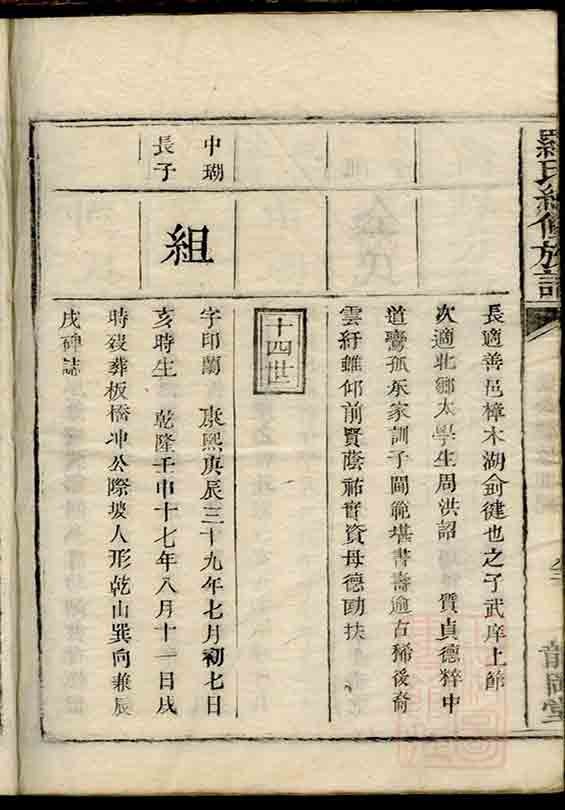 羅氏續修族譜
龍岡堂
長適善邑樟木湖俞健也之子武庠上節
次適北鄉太學生周洪詔 質貞德粹中
道鸞孤氶家訓子閫範堪書壽逾古稀後裔
雲紆雖仰前賢蔭祐實資母德助扶
十四世
中瑚
長子
組
字印蘭 康熙庚辰三十九年七月初七日
亥時生 乾隆壬申十七年八月十一日戌
時歿葬板橋冲公際坡人形乾山巽向兼辰
戌碑誌